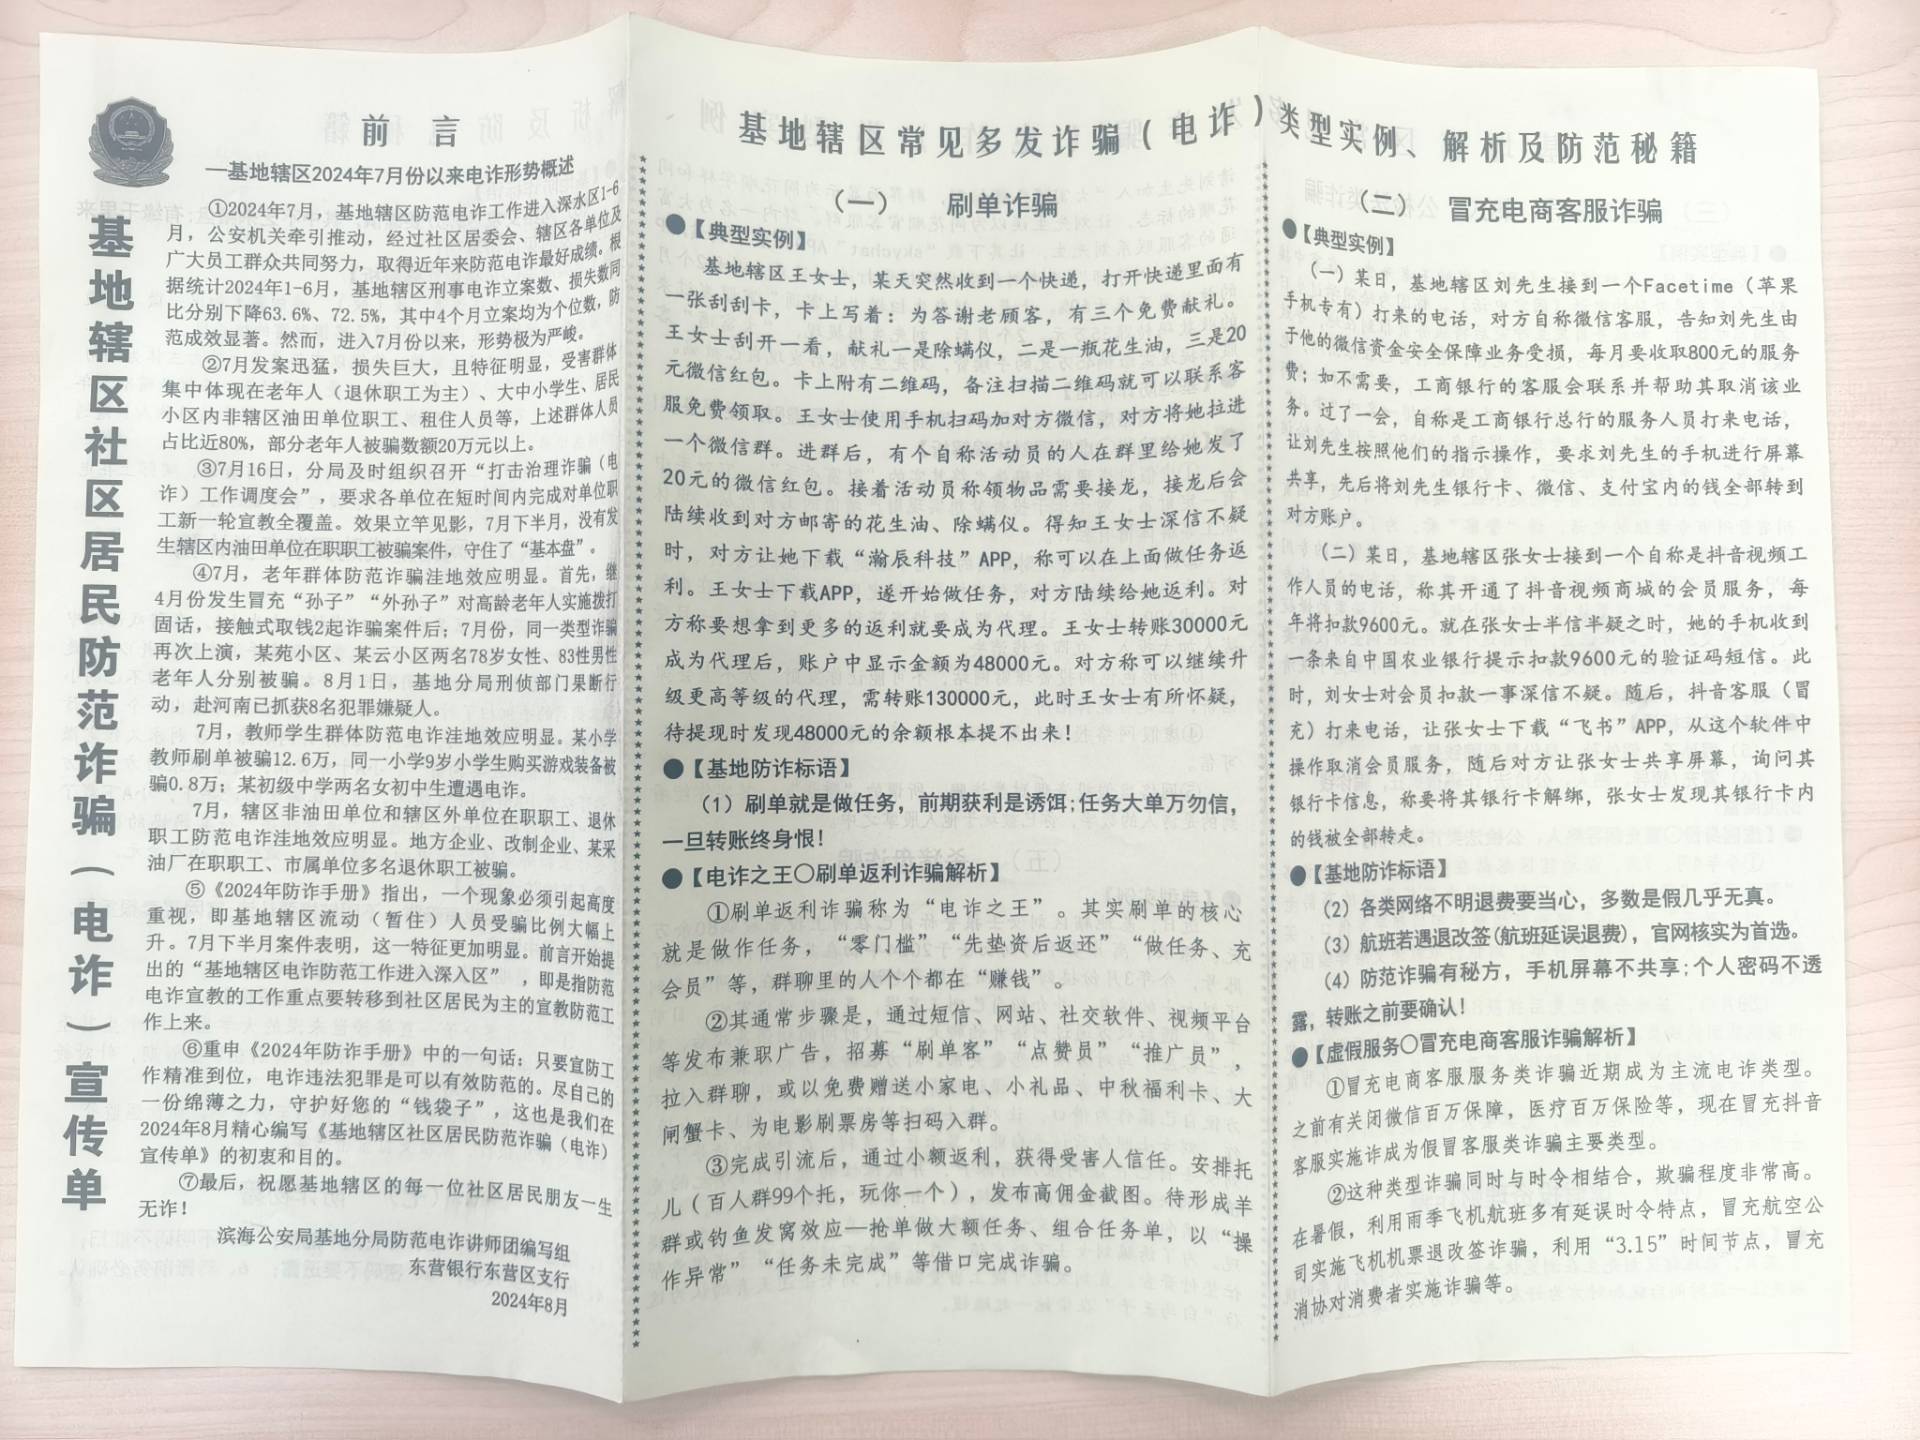 基地辖区社区居民防范诈骗（电诈）宣传单
前 言
—基地辖区2024年7月份以来电诈形势概述
①2024年7月，基地辖区防范电诈工作进入深水区1-6
月，公安机关牵引推动，经过社区居委会、辖区各单位及
广大员工群众共同努力，取得近年来防范电诈最好成绩。根
据统计2024年1-6月，基地辖区刑事电诈立案数、损失数同
比分别下降63.6%、72.5%，其中4个月立案均为个位数，防
范成效显著。然而，进入7月份以来，形势极为严峻。
②7月发案迅猛，损失巨大，且特征明显，受害群体
集中体现在老年人（退休职工为主）、大中小学生、居民
小区内非辖区油田单位职工、租住人员等，上述群体人员
占比近80%，部分老年人被骗数额20万元以上。
③7月16日，分局及时组织召开“打击治理诈骗（电
诈）工作调度会”，要求各单位在短时间内完成对单位职
工新一轮宣教全覆盖。效果立竿见影，7月下半月，没有发
生辖区内油田单位在职职工被骗案件，守住了“基本盘”。
④7月，老年群体防范诈骗洼地效应明显。首先，继
4月份发生冒充“孙子”“外孙子”对高龄老年人实施拨打
固话，接触式取钱2起诈骗案件后；7月份，同一类型诈骗
再次上演，某苑小区、某云小区两名78岁女性、83性男性
老年人分别被骗。8月1日，基地分局刑侦部门果断行
动，赴河南已抓获8名犯罪嫌疑人。
7月，教师学生群体防范电诈洼地效应明显。某小学
教师刷单被骗12.6万，同一小学9岁小学生购买游戏装备被
骗0.8万；某初级中学两名女初中生遭遇电诈。
7月，辖区非油田单位和辖区外单位在职职工、退休
职工防范电诈洼地效应明显。地方企业、改制企业、某采
油厂在职职工、市属单位多名退休职工被骗。
⑤《2024年防诈手册》指出，一个现象必须引起高度
重视，即基地辖区流动（暂住）人员受骗比例大幅上
升。7月下半月案件表明，这一特征更加明显。前言开始提
出的“基地辖区电诈防范工作进入深入区”，即是指防范
电诈宣教的工作重点要转移到社区居民为主的宣教防范工
作上来。
⑥重申《2024年防诈手册》中的一句话：只要宣防工
作精准到位，电诈违法犯罪是可以有效防范的。尽自己的
一份绵薄之力，守护好您的“钱袋子”，这也是我们在
2024年8月精心编写《基地辖区社区居民防范诈骗（电诈）
宣传单》的初衷和目的。
⑦最后，祝愿基地辖区的每一位社区居民朋友一生
无诈！
滨海公安局基地分局防范电诈讲师团编写组
东营银行东营区支行
2024年8月
基地辖区常见多发诈骗（电诈）类型实例、解析及防范秘籍
（一） 刷单诈骗
●【典型实例】
基地辖区王女士，某天突然收到一个快递，打开快递里面有
一张刮刮卡，卡上写着：为答谢老顾客，有三个免费献礼。
王女士刮开一看，献礼一是除螨仪，二是一瓶花生油，三是20
元微信红包。卡上附有二维码，备注扫描二维码就可以联系客
服免费领取。王女士使用手机扫码加对方微信，对方将她拉进
一个微信群。进群后，有个自称活动员的人在群里给她发了
20元的微信红包。接着活动员称领物品需要接龙，接龙后会
陆续收到对方邮寄的花生油、除螨仪。得知王女士深信不疑
时，对方让她下载“瀚辰科技”APP，称可以在上面做任务返
利。王女士下载APP，遂开始做任务，对方陆续给她返利。对
方称要想拿到更多的返利就要成为代理。王女士转账30000元
成为代理后，账户中显示金额为48000元。对方称可以继续升
级更高等级的代理，需转账130000元，此时王女士有所怀疑，
待提现时发现48000元的余额根本提不出来！
●【基地防诈标语】
（1）刷单就是做任务，前期获利是诱饵;任务大单万勿信，
一旦转账终身恨！
●【电诈之王○刷单返利诈骗解析】
①刷单返利诈骗称为“电诈之王”。其实刷单的核心
就是做作任务，“零门槛”“先垫资后返还”“做任务、充
会员”等，群聊里的人个个都在“赚钱”。
②其通常步骤是，通过短信、网站、社交软件、视频平台
等发布兼职广告，招募“刷单客”“点赞员”“推广员”，
拉入群聊，或以免费赠送小家电、小礼品、中秋福利卡、大
闸蟹卡、为电影刷票房等扫码入群。
③完成引流后，通过小额返利，获得受害人信任。安排托
儿（百人群99个托，玩你一个），发布高佣金截图。待形成羊
群或钓鱼发窝效应—抢单做大额任务、组合任务单，以“操
作异常”“任务未完成”等借口完成诈骗。
（二） 冒充电商客服诈骗
●【典型实例】
（一）某日，基地辖区刘先生接到一个Facetime（苹果
手机专有）打来的电话，对方自称微信客服，告知刘先生由
于他的微信资金安全保障业务受损，每月要收取800元的服务
费；如不需要，工商银行的客服会联系并帮助其取消该业
务。过了一会，自称是工商银行总行的服务人员打来电话，
让刘先生按照他们的指示操作，要求刘先生的手机进行屏幕
共享，先后将刘先生银行卡、微信、支付宝内的钱全部转到
对方账户。
（二）某日，基地辖区张女士接到一个自称是抖音视频工
作人员的电话，称其开通了抖音视频商城的会员服务，每
年将扣款9600元。就在张女士半信半疑之时，她的手机收到
一条来自中国农业银行提示扣款9600元的验证码短信。此
时，刘女士对会员扣款一事深信不疑。随后，抖音客服（冒
充）打来电话，让张女士下载“飞书”APP，从这个软件中
操作取消会员服务，随后对方让张女士共享屏幕，询问其
银行卡信息，称要将其银行卡解绑，张女士发现其银行卡内
的钱被全部转走。
●【基地防诈标语】
（2）各类网络不明退费要当心，多数是假几乎无真。
（3）航班若遇退改签(航班延误退费)，官网核实为首选。
（4）防范诈骗有秘方，手机屏幕不共享;个人密码不透
露，转账之前要确认！
●【虚假服务○冒充电商客服诈骗解析】
①冒充电商客服服务类诈骗近期成为主流电诈类型。
之前有关闭微信百万保障，医疗百万保险等，现在冒充抖音
客服实施诈成为假冒客服类诈骗主要类型。
②这种类型诈骗同时与时令相结合，欺骗程度非常高。
在暑假，利用雨季飞机航班多有延误时令特点，冒充航空公
司实施飞机机票退改签诈骗，利用“3.15”时间节点，冒充
消协对消费者实施诈骗等。